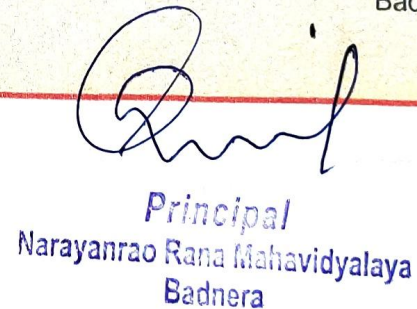 Principal
Narayanrao Rana Mahavidyalaya
Badnera